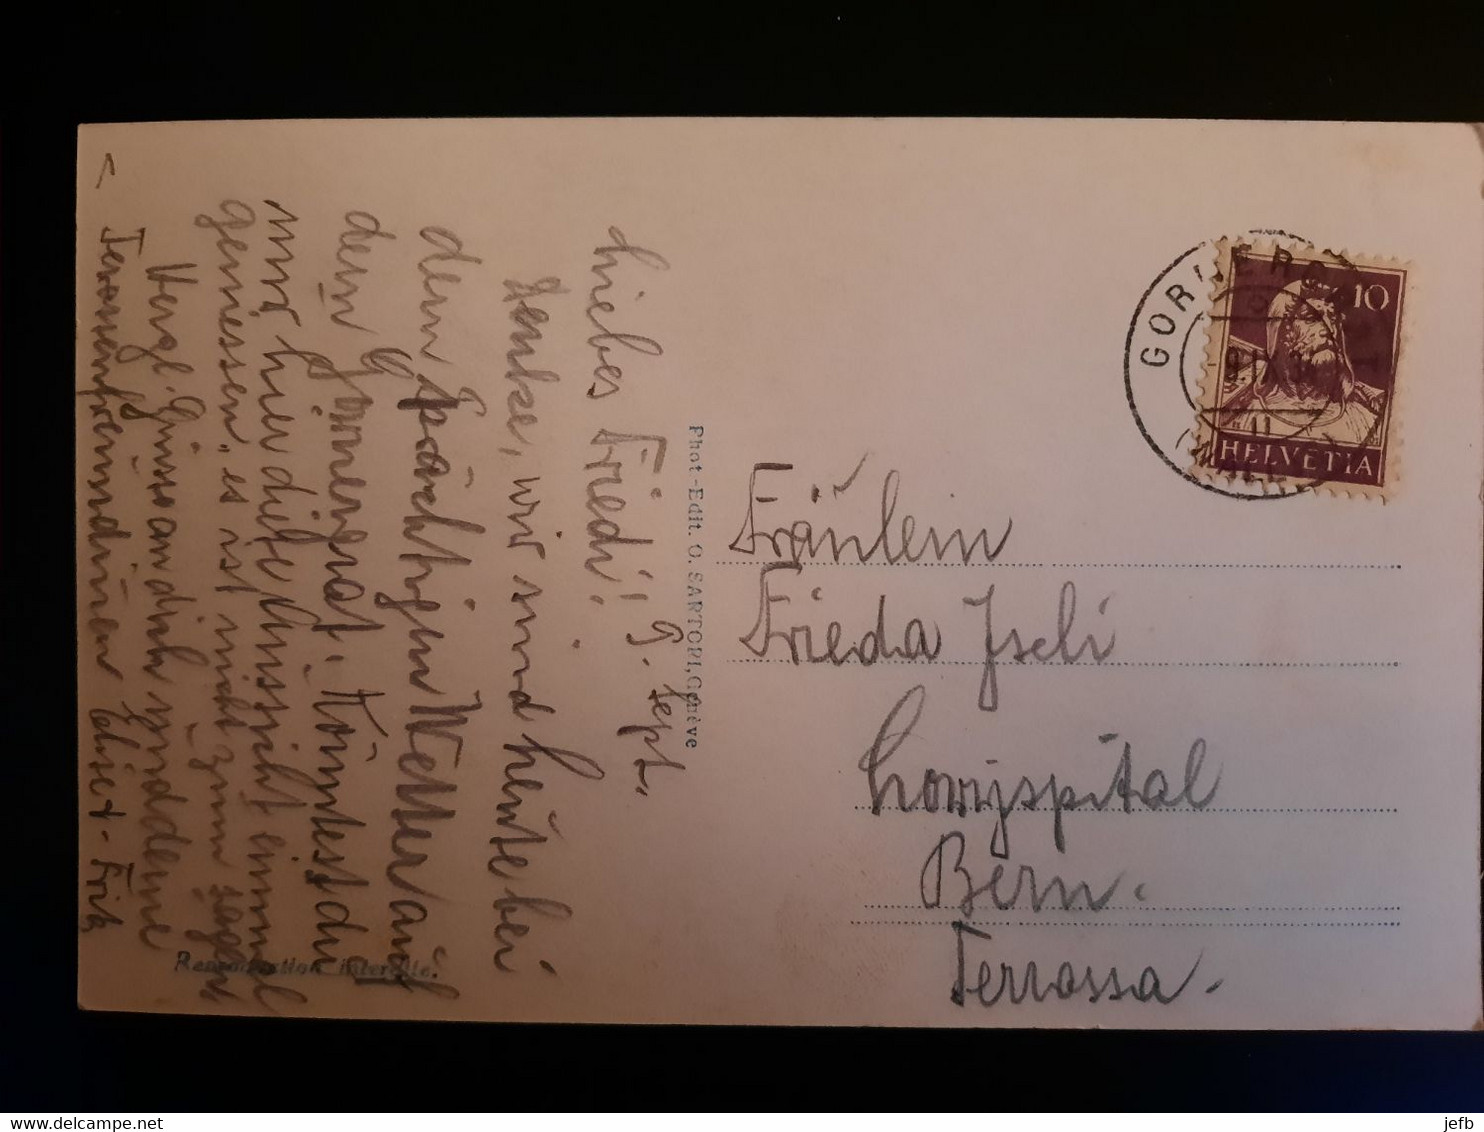 Liebes Friedi! 9. Sept.
Denke, wir sind heute bei
dem prächtigen Wetter auf
dem Gornergrat. Könntest du
nur hier diese Aussicht einmal
geniessen, es ist nicht zum sagen
Vergl. Grüsse an dich und deine
Terrassenfreundinnen Elise + Fritz
Phot.-Edit. O. SARTORI, Genève
Reproduction interdite.
GORNERGRAT
9.IX.
11
10
HELVETIA
Fräulein
Frieda Jseli
Loryspital
Bern.
Terrassa.
jefb